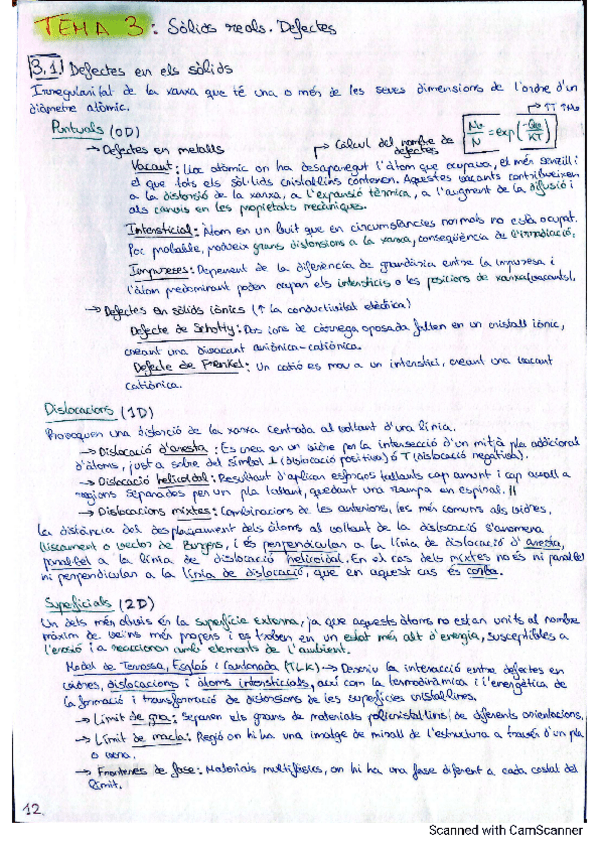 TEMA 3: Sòlids reals. Defectes
3.1. Defectes en els sòlids
Irregularitat de la xarxa que té una o més de les seves dimensions de l'ordre d'un
diàmetre atòmic.
Puntuals (0D)
→ Defectes en metalls
Càlcul del nombre de defectes
Nv/N = exp(-Qv/KT)
Vacant: Lloc atòmic on ha desaparegut l'àtom que ocupava, el més senzill i
el que tots els sòlids cristal·lins contenen. Aquestes vacants contribueixen
a la distorsió de la xarxa, a l'expansió tèrmica, a l'augment de la difusió i
als canvis en les propietats mecàniques.
Intersticial: Àtom en un lloc que en circumstàncies normals no està ocupat.
Poc probable, produeix grans distorsions a la xarxa, conseqüència de l'irradiació.
Impureses: Depenent de la diferència de grandària entre la impuresa i
l'àtom predominant poden ocupar els intersticis o les posicions de xarxa (vacants).
→ Defectes en sòlids iònics (↑ la conductivitat elèctrica)
Defecte de Schotty: Dos ions de càrrega oposada falten en un cristall iònic,
creant una divacant aniònica-catiònica.
Defecte de Frenkel: Un catió es mou a un interstici, creant una vacant
catiònica.
Dislocacions (1D)
Provoquen una distorció de la xarxa centrada al voltant d'una línia.
→ Dislocació d'aresta: Es crea en un vidre per la intersecció d'un mitjà pla addicional
d'àtoms, just a sobre del símbol ⊥ (dislocació positiva) ó T (dislocació negativa).
→ Dislocació helicoïdal: Resultant d'aplicar esforços tallants cap amunt i cap avall a
regions separades per un pla tallant, quedant una rampa en espiral. //
→ Dislocacions mixtes: Combinacions de les anteriors, les més comuns als vidres.
La distància del desplaçament dels àtoms al voltant de la dislocació s'anomena
lliscament o vector de Burgers, i és perpendicular a la línia de dislocació d'aresta,
paral·lel a la línia de dislocació helicoïdal. En el cas dels mixtes no és ni paral·lel
ni perpendicular a la línia de dislocació, que en aquest cas és corba.
Superficials (2D)
Un dels més obvis és la superfície externa, ja que aquests àtoms no estan units al nombre
màxim de veïns més propers i es troben en un estat més alt d'energia, susceptibles a
l'erosió i a reaccionar amb elements de l'ambient.
Model de Terrassa, Esglaó i Cantonada (TLK) → Descriu la interacció entre defectes en
vidres, dislocacions i àtoms intersticials, així com la termodinàmica i l'energètica de
la formació i transformació de distorsions de les superfícies cristal·lines.
→ Límit de gra: Separen els grans de materials policristal·lins de diferents orientacions.
→ Límit de macla: Regió on hi ha una imatge de mirall de l'estructura a través d'un pla
o zona.
→ Fronteres de fase: Materials multifàsics, on hi ha una fase diferent a cada costat del
límit.
12.
Scanned with CamScanner